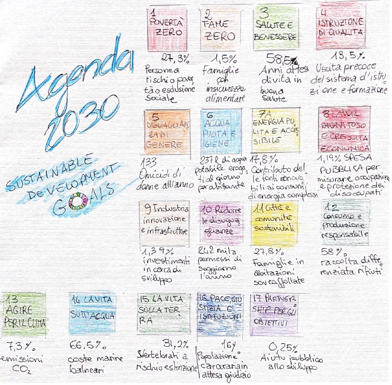 Agenda
2030
SUSTAINABLE
DEVELOPMENT
GOALS
1
POVERTÀ
ZERO
27,3%
Persone a
rischio pover
tà o esclusione
sociale
2
FAME
ZERO
1,5%
Famiglie
con
insicurezza
alimentare
3
SALUTE E
BENESSERE
58,5
Anni attesi
di vita in
buona
salute
4
ISTRUZIONE
DI QUALITÀ
13,5%
Uscita precoce
del sistema d'istru
zione e formazione
5
GENERE
133
Omicidi di
donne all'anno
6
ACQUA
PULITA E
IGIENE
237 l di acqua
potabile eroga
ti al giorno
per abitante
7
ENERGIA PU
LITA E ACCES
SIBILE
17,8%
Contributo del
le fonti rinnova
bili ai consumi
di energia complessivi
8 LAVORO
DIGNITOSO
E CRESCITA
ECONOMICA
1,19% SPESA
PUBBLICA per
misure occupazione
e protezione dei
disoccupati
9 Industria
innovazione
e infrastrutture
1,39%
investimenti
in ricerca di
sviluppo
10 Ridurre
le disugua
glianze
242 mila
permessi di
soggiorno
l'anno
11 Città e
comunità
sostenibili
27,8%
Famiglie in
abitazioni
sovraffollate
12
Consumo e
produzione
responsabile
58%
raccolta diffe
renziata rifiuti
13
AGIRE
PER IL CLIMA
7,3%
emissioni
CO2
14 LA VITA
SOTT'ACQUA
66,5%
coste marine
balneari
15 LA VITA
SULLA TER
RA
31,2%
Vertebrati a
rischio estinzione
16 PACE, GIU
STIZIA E
ISTITUZIONI
Popolazione
carceraria in
attesa giudizio
17 PARTNER
SHIP PER GLI
OBIETTIVI
0,25%
Aiuto pubblico
allo sviluppo